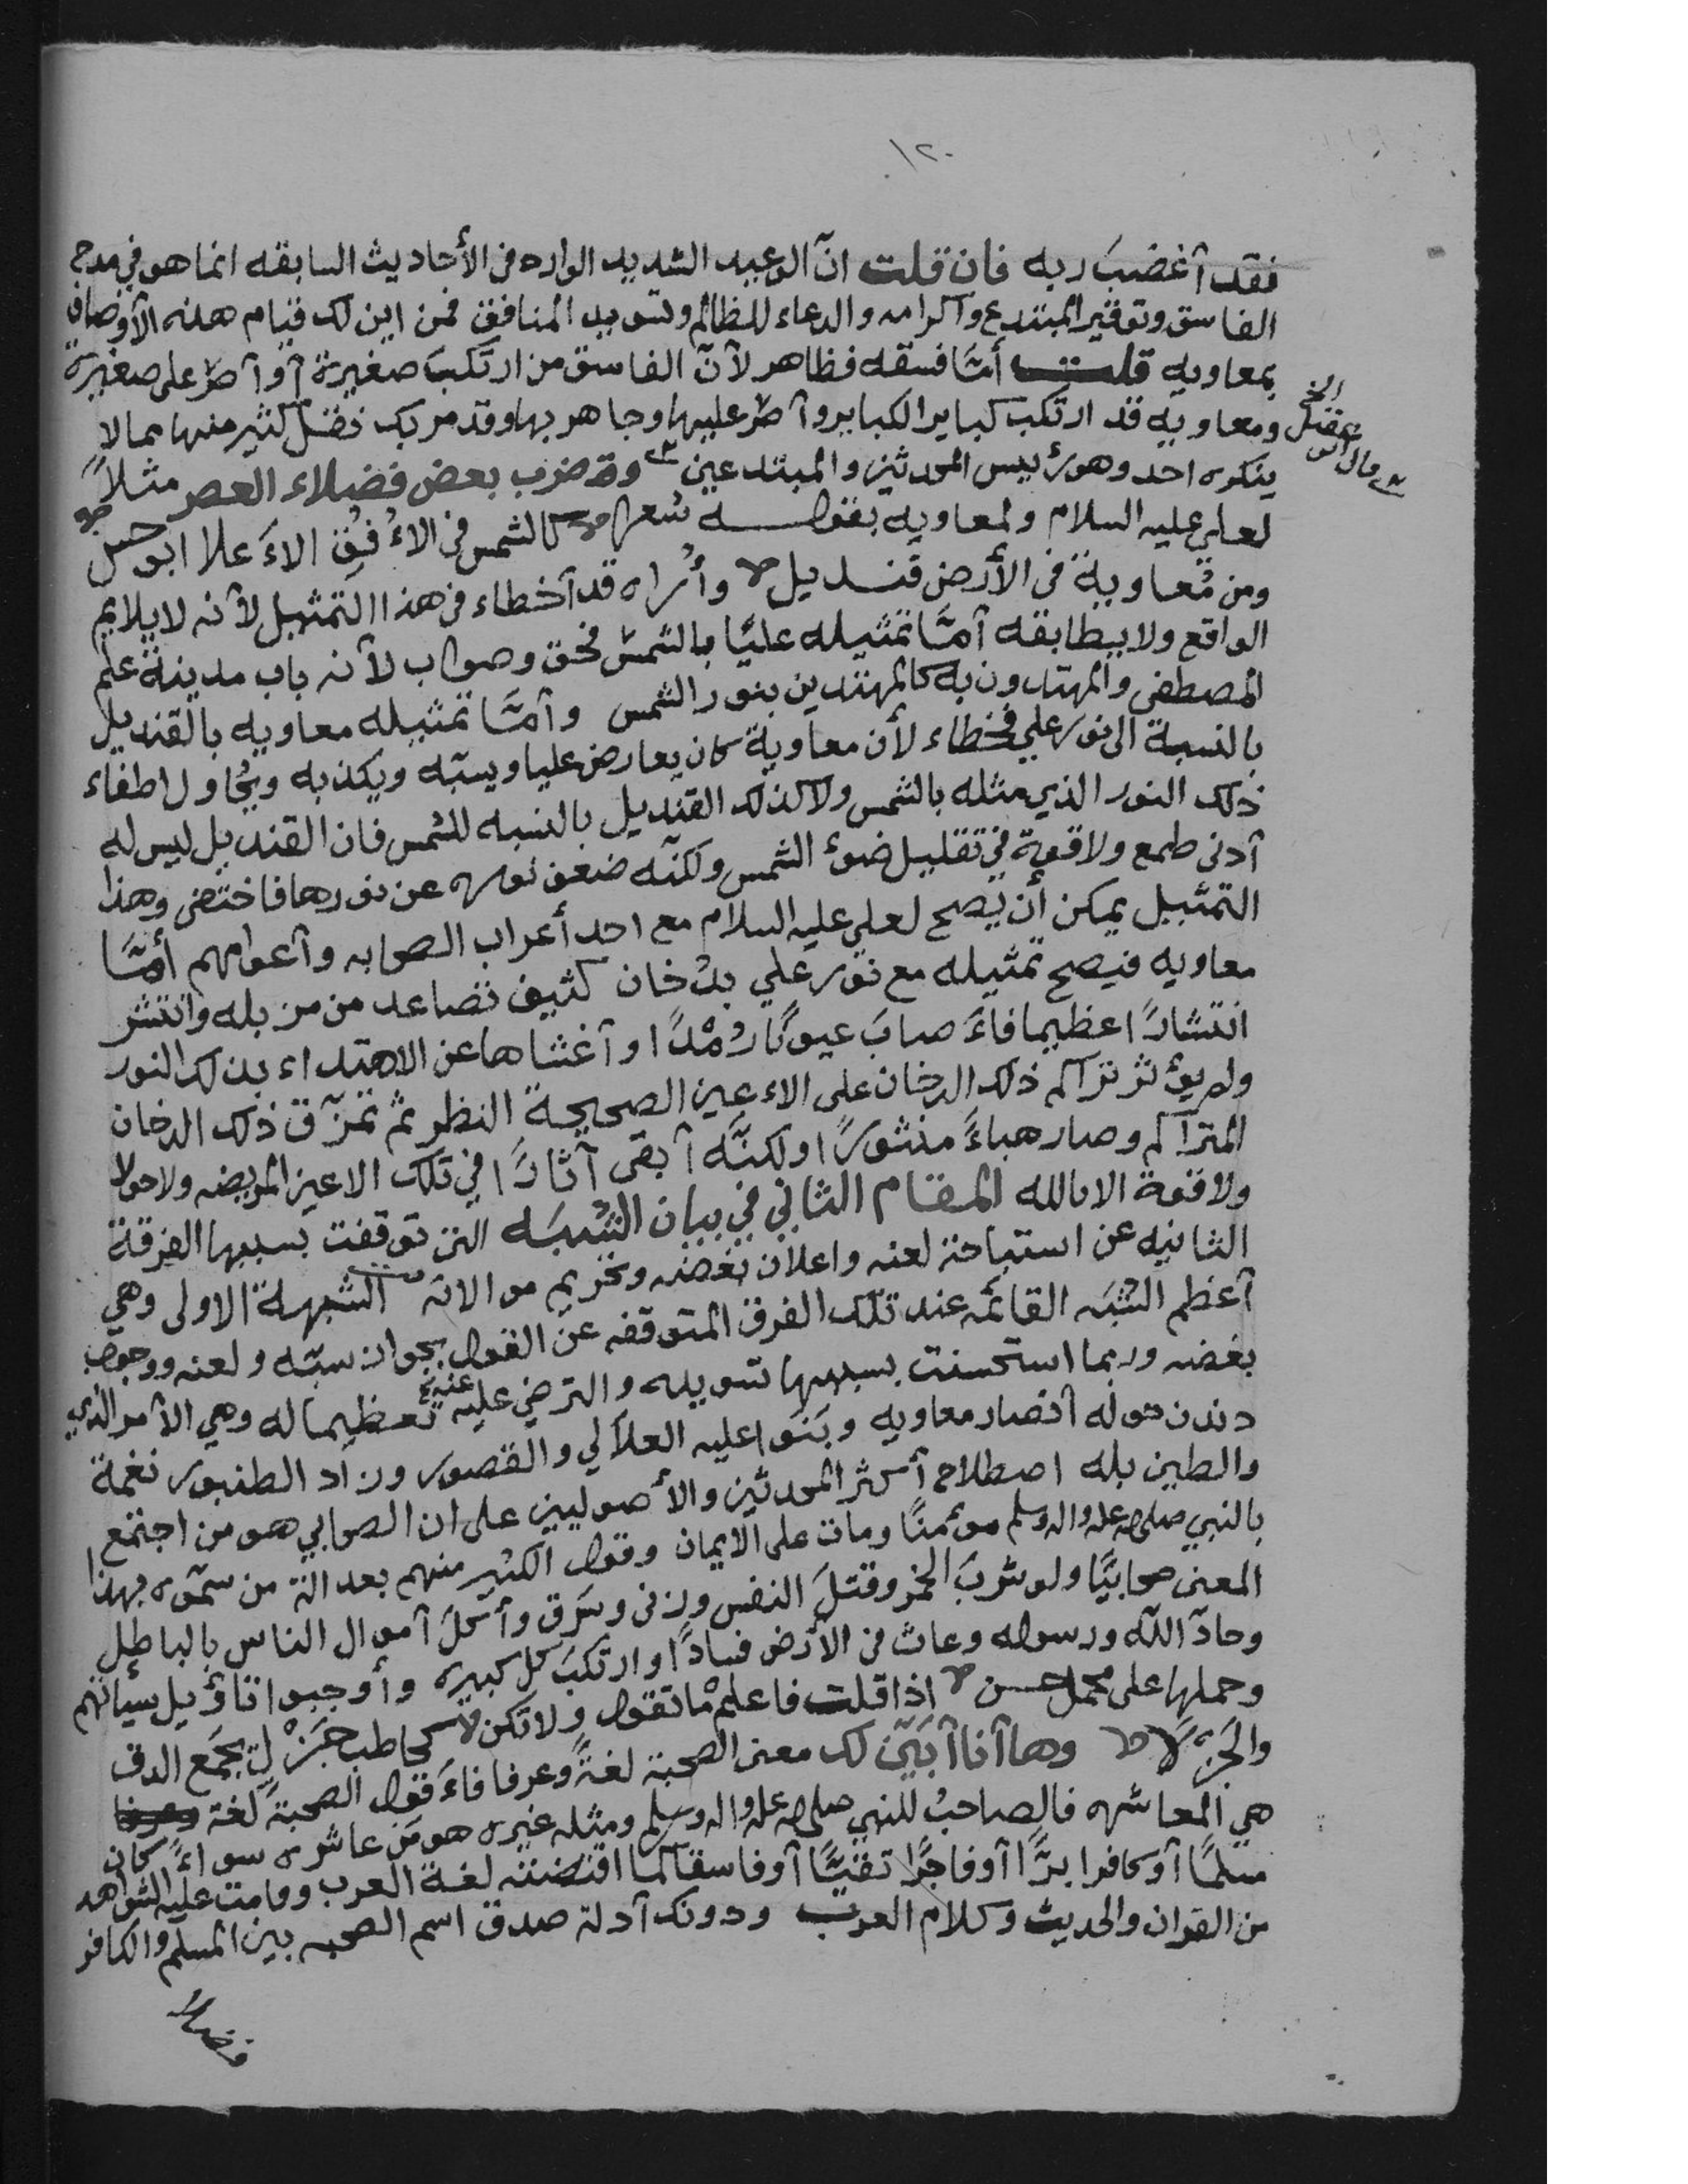 ١٢٠
فقد أغضبَ ربه فان قلت انّ الوعيد الشديد الوارد في الأحاديث السابقه انما هو في مدح
الفاسق وتوقير المبتدع واكرامه والدعاء للظالم وتسويد المنافق فمن اين لك قيام هذه الأوصاف
بمعاويه قلت أمَّا فسقه فظاهر لأنّ الفاسق من ارتكبَ صغيرة أو أصرّ على صغيرة
ومعاويه قد ارتكب كباير الكباير وأصرّ عليها وجاهر بها وقد مر بك نقل كثير منها مما لا
ينكره احد وهو رئيس المحدثين والمبتدعين وقد ضرب بعض فضلاء العصر مثلاً
لعلي عليه السلام ولمعاويه بقوله شعرا كالشمس في الاُفُقِ الاَعلا ابو حسن
ومن مُعاوية في الأرض قنديل وأُراه قد أخطاء في هذا التمثيل لأنه لا يلايم
الواقع ولا يطابقه أمَّا تمثيله عليًا بالشمس فحق وصواب لأنه باب مدينة علم
المصطفى والمهتدون به كالمهتدين بنور الشمس وأمَّا تمثيله معاويه بالقنديل
بالنسبة الى نور علي فخطاء لأن معاوية كان يعارض عليا ويسبّه ويكذبه ويُحاول اطفاء
ذلك النور الذي مثله بالشمس ولا كذلك القنديل بالنسبه للشمس فان القنديل ليس له
أدنى طمع ولا قوة في تقليل ضوء الشمس ولكنّه ضعف نوره عن نورها فاختفى وهذا
التمثيل يمكن أن يصح لعلي عليه السلام مع احد أعراب الصحابه وأعوامهم أمَّا
معاويه فيصح تمثيله مع نور علي بدُخان كثيف تصاعد من مزبله وانتشر
انتشارًا عظيما فأصابَ عيونًا رُمْدًا وأغشاها عن الاهتداء بذلك النور
ولم يؤثر تراكم ذلك الدخان على الاعين الصحيحة النظر ثم تمزّق ذلك الدخان
المتراكم وصار هباءً منثورًا ولكنّه أبقى آثارًا في تلك الاعين المريضه ولا حول
ولا قوة الا بالله المقام الثاني في بيان الشُبَه التي توقفت بسببها الفرقة
الثانيه عن استباحة لعنه واعلان بُغضه وتحريم موالاته الشبهة الاولى وهي
أعظم الشُبَه القائمه عند تلك الفرق المتوقفه عن القول بجواز سبّه ولعنه ووجوب
بغضه وربما استحسنت بسببها تسويده والترضي عليه عنه تعظيما له وهي الأمر الذي
دندن حوله أنصار معاويه وبَنَوا عليه العلالي والقصور وزاد الطنبور نغمة
والطين بله اصطلاح أكثر المحدثين والأصوليين على ان الصحابي هو من اجتمع
بالنبي صلى الله عليه واله وسلم مؤمنًا ومات على الايمان وقول الكثير منهم بعدالة من سمّوه بهذا
المعنى صحابيًا ولو شربَ الخمر وقتلَ النفس وزنى وسَرق وأكلَ أموال الناس بالباطل
وحادّ اللّه ورسوله وعاث في الأرض فسادًا وارتكبَ كل كبيره وأوجبوا تأويل سيأتهم
وحملها على محمل حسن اذا قلت فاعلمْ ما تقول ولا تكن كحاطب جَزْلٍ يجمَع الدق
والجَزْلا وها أنا أبيّن لك معنى الصحبة لغةً وعرفا فأقول الصحبة لغة
هي المعاشره فالصاحبُ للنبي صلى الله عليه واله وسلم ومثله غيره هو مَن عاشره سواءً كان
مسلمًا أو كافرا برًّا أو فاجرًا تقيًّا أو فاسقا كما اقتضته لغة العرب وقامت عليه الشواهد
من القران والحديث وكلام العرب ودونك أدلة صدق اسم الصحبه بين المسلم والكافر